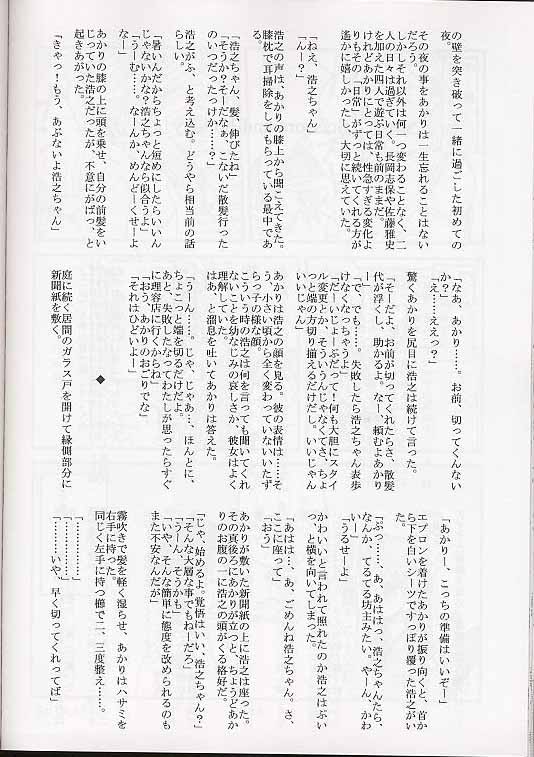 の壁を突き破って一緒に過ごした初めての
夜。
その夜の事をあかりは一生忘れることはない
だろう。
しかしそれ以外は何一つ変わることなく、二
人の日々は過ぎていく。長岡志保や佐藤雅史
を加えた四人で遊ぶ日常も前のままだ。
けれどあかりにとっては、性急すぎる変化よ
りもその「日常」がずっと続いてくれる方が
遙かに嬉しかったし、大切に思えていた。
「ねえ、浩之ちゃん」
「んー？」
浩之の声は、あかりの膝上から聞こえてきた。
膝枕で耳掃除をしてもらっている最中であ
る。
「浩之ちゃん、髪、伸びたね」
「そうか？そーだなぁ、こないだ散髪行った
のいつだったっけか……？」
浩之がふ、と考え込む。どうやら相当前の話
らしい。
「暑いんだからちょっと短めにしたらいいん
じゃないかな？浩之ちゃんなら似合うよ」
「うーむ……。なーんか、めんどくせーよ
なー」
あかりの膝の上に頭を乗せ、自分の前髪をい
じっていた浩之だったが、不意にがばっ、と
起きあがった。
「きゃっ！もう、あぶないよ浩之ちゃん」
「なあ、あかり……。お前、切ってくんない
か？」
「え……ええっ？」
驚くあかりを尻目に浩之は続けて言った。
「そーだよ、お前が切ってくれたらさ、散髪
代が浮くし、助かるよ。なー、頼むよあかり
「で、でも……。失敗したら浩之ちゃん表歩
けなくなっちゃうよ」
「だーいじょーぶだって！何も大胆にスタイ
ル変更とか、そういうんじゃなくてさ、ちょ
っと端の方切り揃えるだけだし。いいじゃん
いいじゃん」
あかりは浩之の顔を見る。彼の表情は……そ
う、小さい頃から全く変わっていないいたず
らっ子の様な顔。
こういう時の浩之は何を言っても聞いてくれ
ないことを幼なじみの哀しさか、彼女はよく
理解していた。
はあ、と溜息を吐いてあかりは答えた。
「うーん……。じゃ、じゃあ…、ほんとに、
ちょこっと端を切るだけだよ。
あと、失敗したなってわたしが思ったらすぐ
に理容店に行くからね」
「おう、あかりのおごりでな」
「それはひどいよー」
◆
庭に続く居間のガラス戸を開けて縁側部分に
新聞紙を敷く。
「あかりー、こっちの準備はいいぞー」
エプロンを着けたあかりが振り向くと、首か
ら下を白いシーツですっぽり覆った浩之がい
た。
「ぷっ……。あ、あははっ、浩之ちゃんたら、
なんか、てるてる坊主みたい。やーん、かわ
「うるせーよ」
かわいいと言われて照れたのか浩之はぷい
っ、と横を向いてしまった。
「あはは…。あ、ごめんね浩之ちゃん。さ、
ここに座って」
「おう」
あかりが敷いた新聞紙の上に浩之は座った。
その真後ろにあかりが立つと、ちょうどあか
りのお腹の一に浩之の頭がくる格好だ。
「じゃ、始めるよ。覚悟はいい、浩之ちゃん？」
「そんな大層な事でもねーだろ」
「うーん、そうかも」
「いや、そんな簡単に態度を改められるのも
また不安なんだが」
霧吹きで髪を軽く湿らせ、あかりはハサミを
右手に持った。
同じく左手に持つ櫛で二、三度整え……。
「…………」
「…………」
「……いや、早く切ってくれってば」